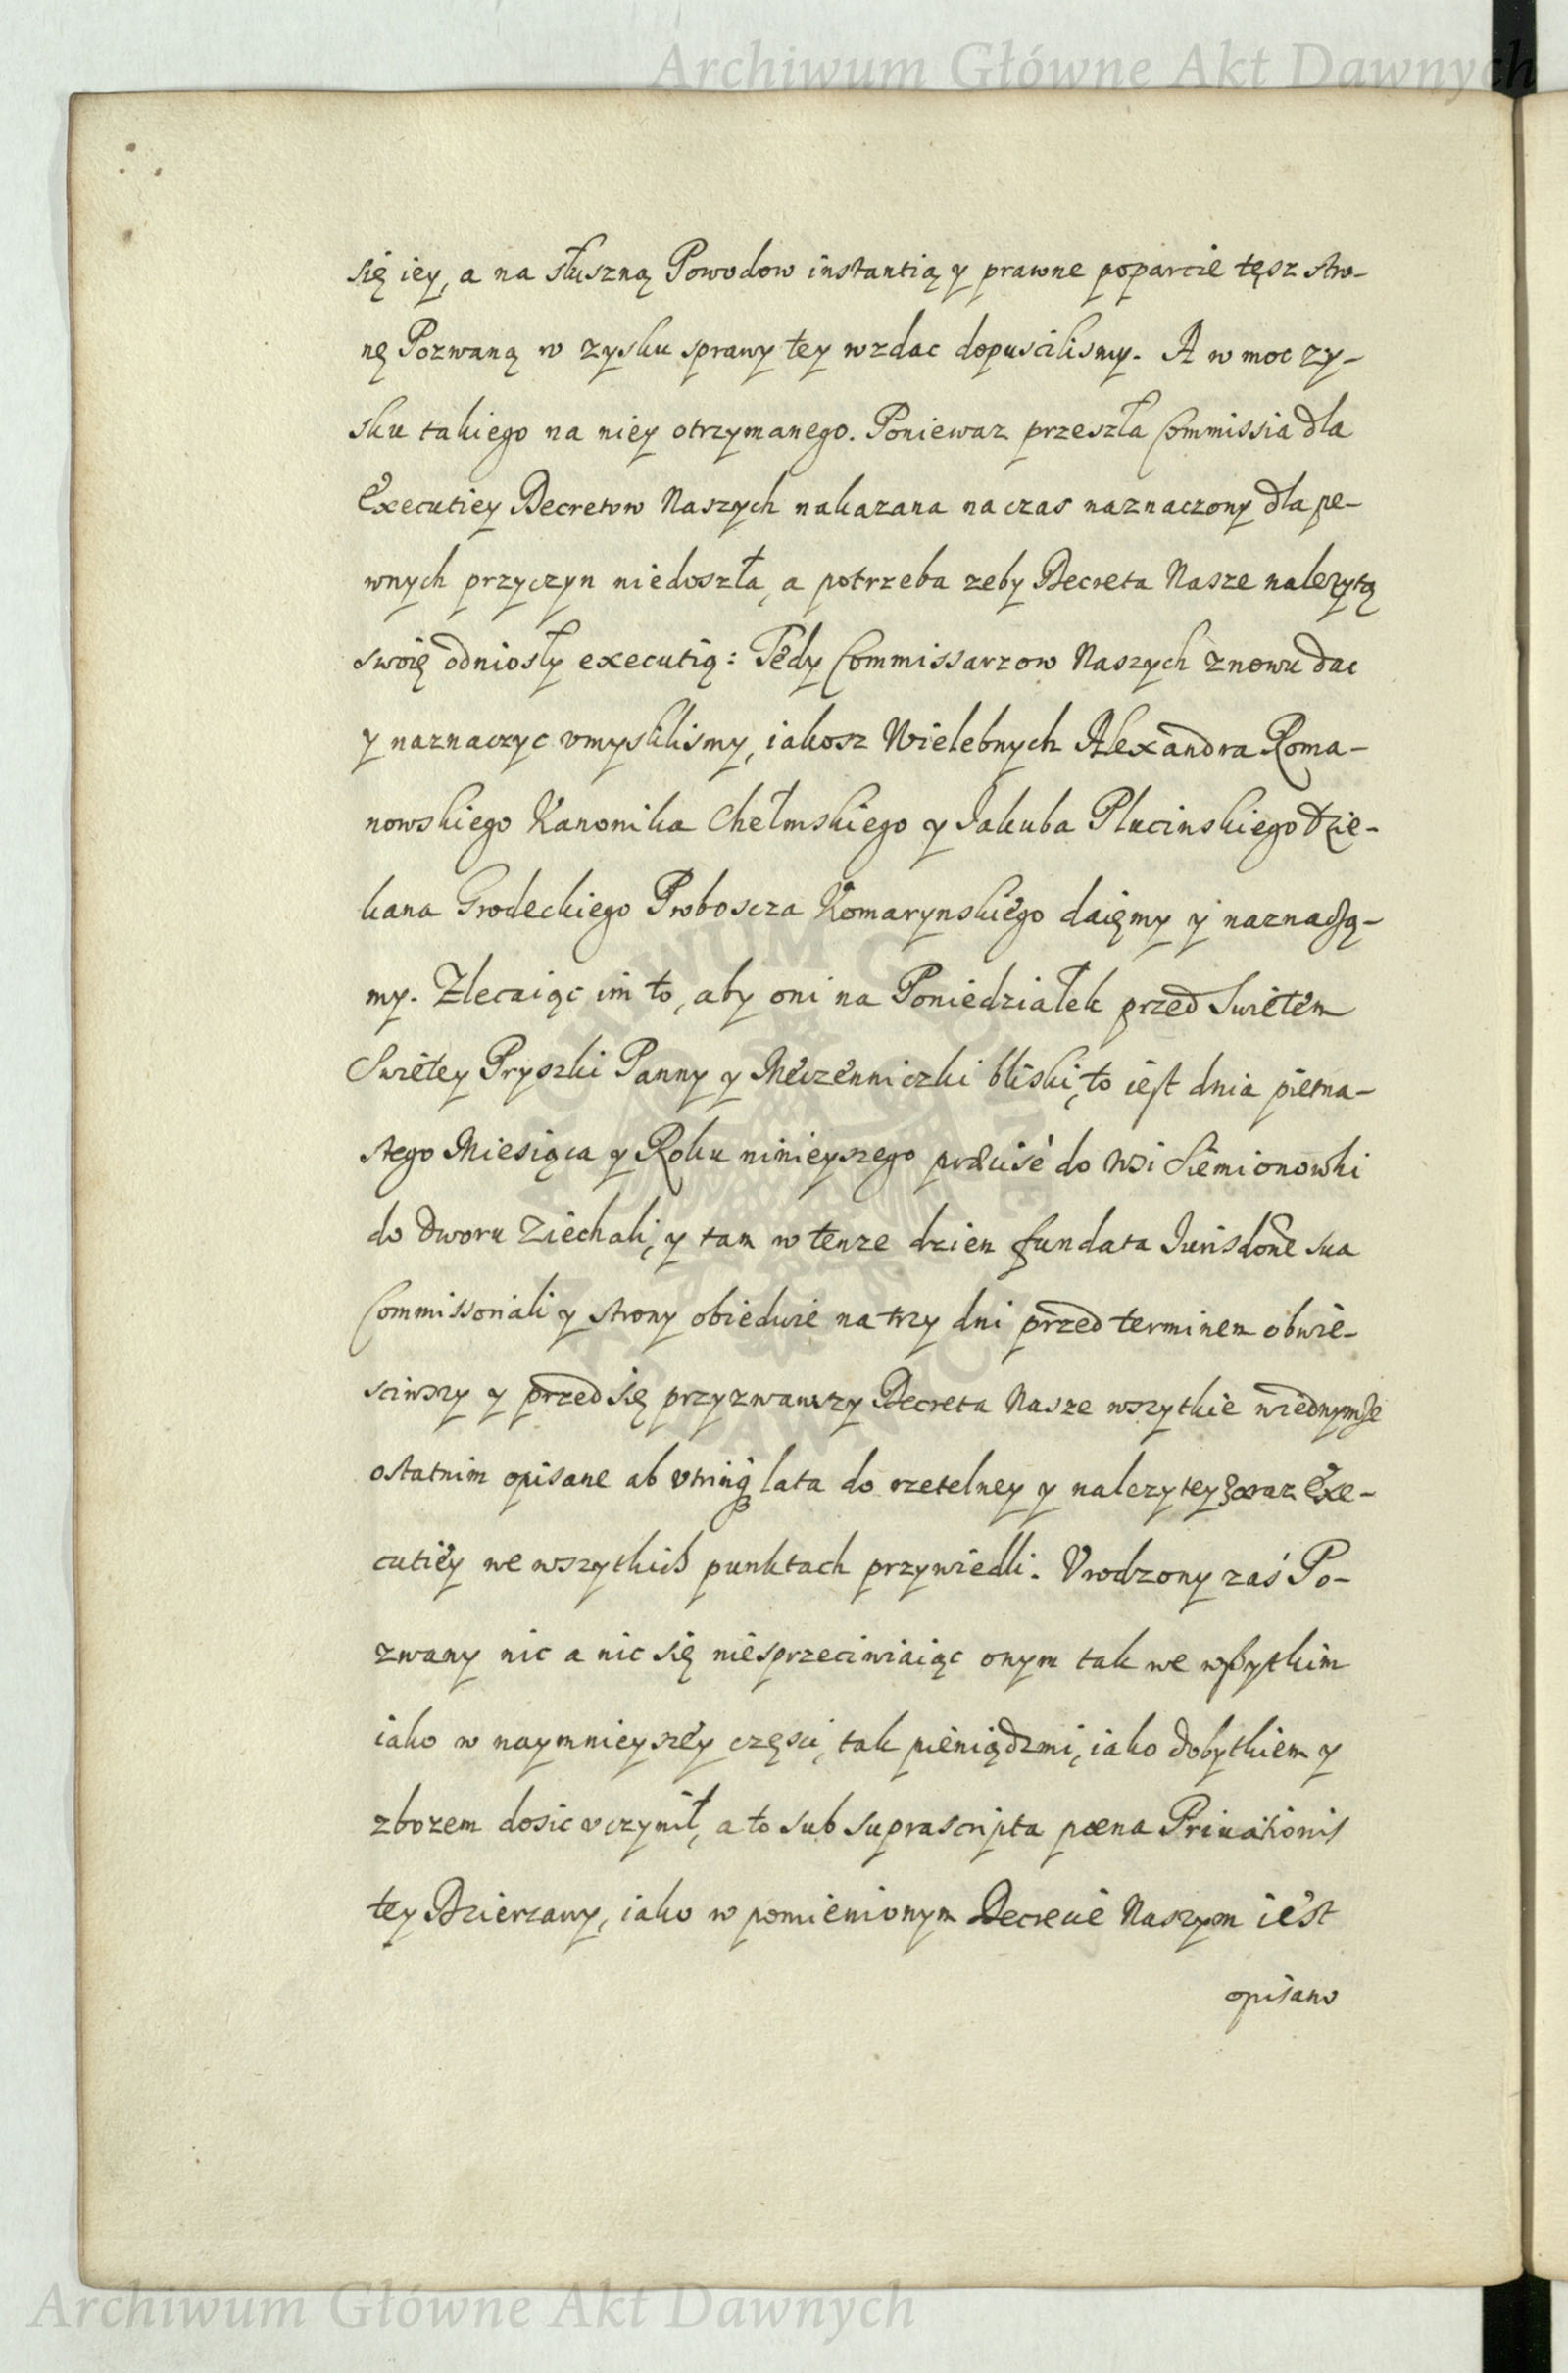 Archiwum Główne Akt Dawnych
się iey, a na słuszną Powodow instantią y prawne poparcie tęsz stro-
nę Pozwaną w zysku sprawy tey wzdac dopuscilismy. A w moc zy-
sku takiego na niey otrzymanego. Poniewaz przeszła Commissia dla
Executiey Decretow Naszych nakazana na czas naznaczony dla pe-
wnych przyczyn niedoszła, a potrzeba zeby Decreta Nasze nalezytą
swoię odniosły executią: Tedy Commissarzow Naszych znowu dac
y naznaczyc vmyslilismy, iakosz Wielebnych Alexandra Roma-
nowskiego Kanonika Chełmskiego y Jakuba Plucinskiego Dzie-
kana Grodeckiego Proboscza Komarynskiego daięmy y naznaczą-
my. Zlecaiąc im to, aby oni na Poniedziałek przed Swietem
Swietey Pryszki Panny y Męczenniczki bliski, to iest dnia pietna-
stego Miesiąca y Roku ninieyszego przcisć do Wsi Siemionowki
do Dworu Ziechali, y tam w tenze dzien fundata Jurisdone sua
Commissoriali y strony obiedwie na trzy dni przed terminem obwie-
sciwszy y przed się przyzwawszy Decreta Nasze wszytkie wiednymze
ostatnim opisane ab vtrinq lata do rzetelney y nalezytey zaraz Exe-
cutiey we wszytkich punktach przywiedli. Vrodzony zaś Po-
zwany nic a nic się niesprzeciwiaiąc onym tak we wszytkim
iako w naymnieyszey częsci, tak pieniądzmi, iako dobytkiem y
zbozem dosic vczynił, a to sub suprascripta poena Priuationis
tey Dzierzawy, iako w pomienionym Decrecie Naszym iest
opisano
Archiwum Główne Akt Dawnych